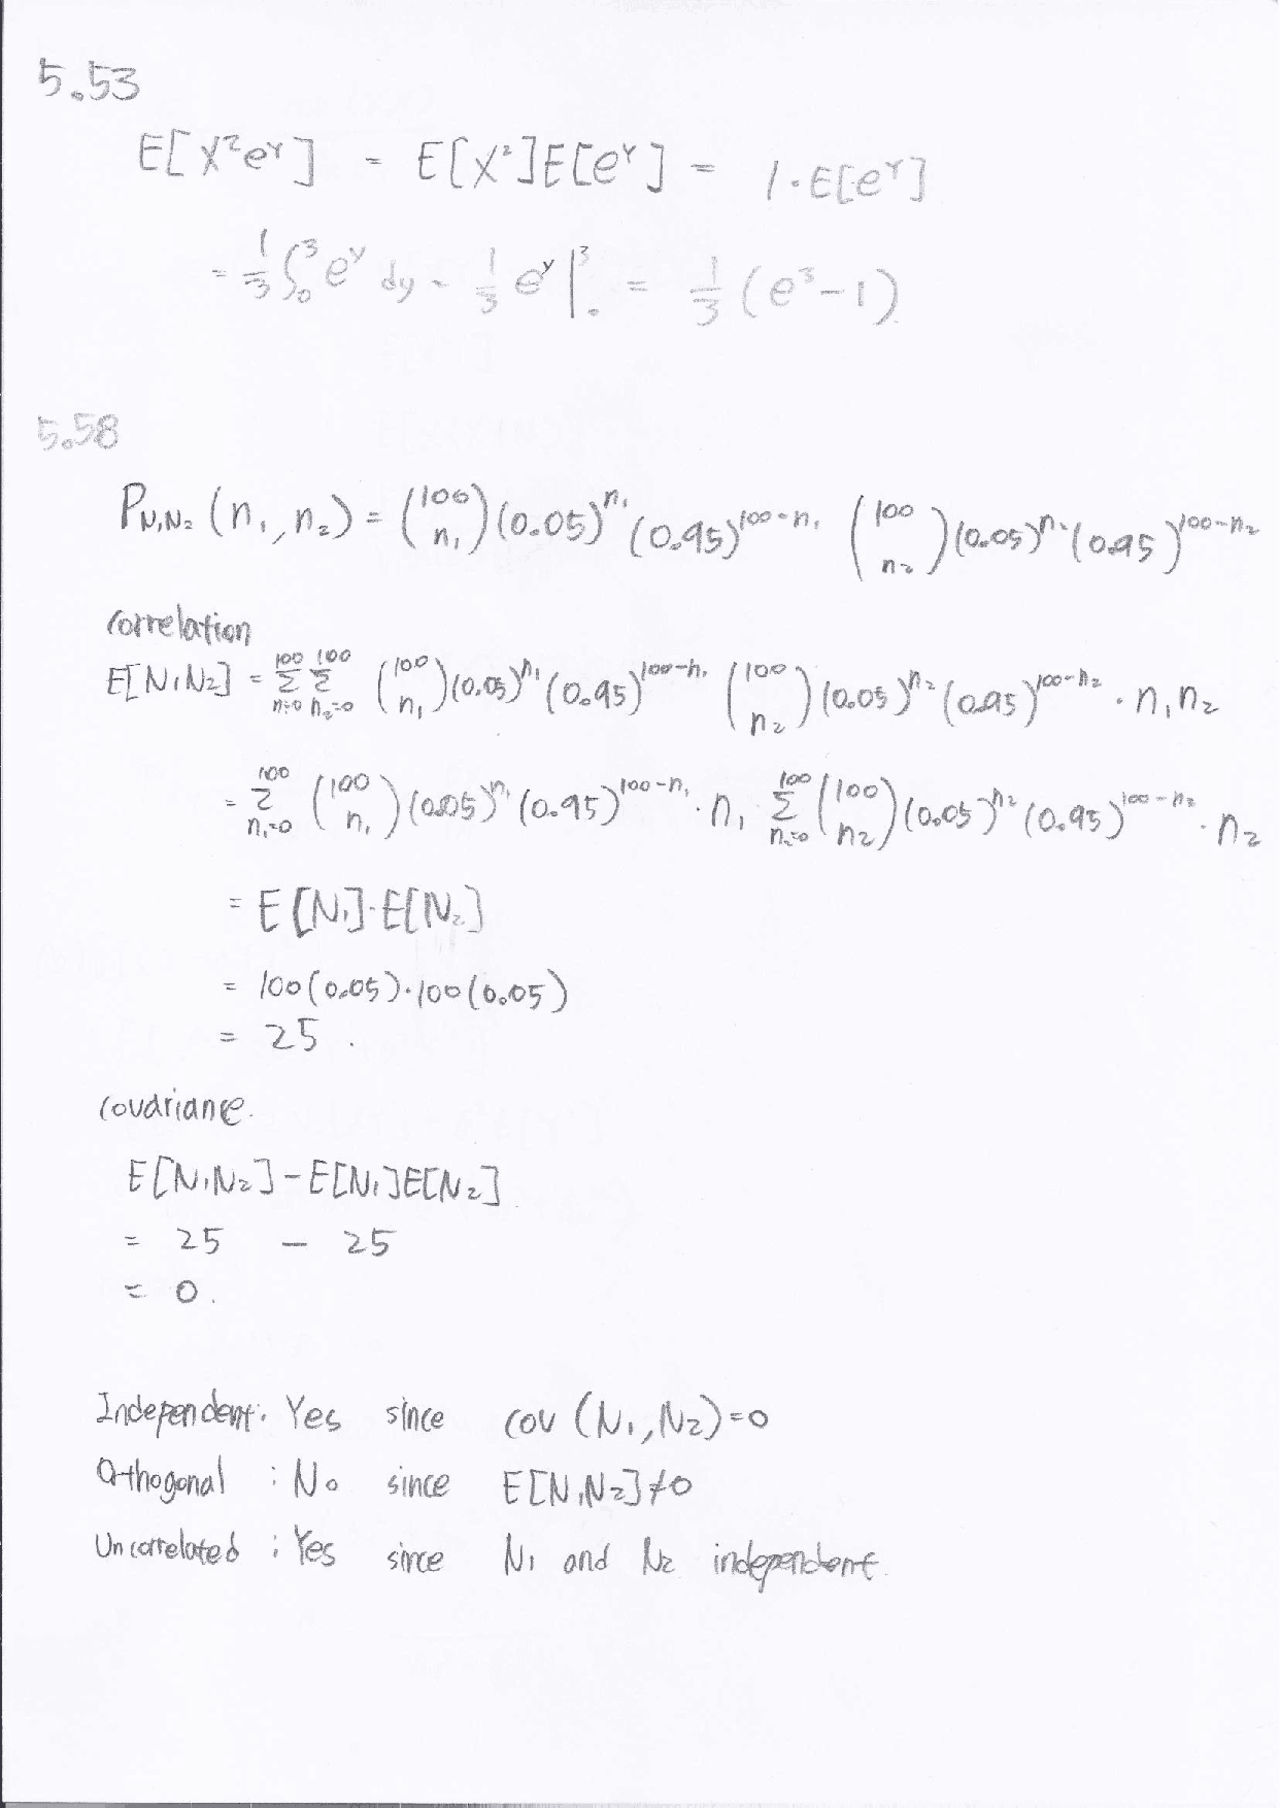 5.53
E[X²e^Y] = E[X²]E[e^Y] = 1·E[e^Y]
= 1/3 ∫₀³ e^y dy = 1/3 e^y |₀³ = 1/3 (e³-1).
5.58
P_{N₁N₂}(n₁, n₂) = (100 n₁)(0.05)^{n₁}(0.95)^{100-n₁} (100 n₂)(0.05)^{n₂}(0.95)^{100-n₂}
correlation
E[N₁N₂] = Σ_{n=0}^{100} Σ_{n₂=0}^{100} (100 n₁)(0.05)^{n₁}(0.95)^{100-n₁} (100 n₂)(0.05)^{n₂}(0.95)^{100-n₂} · n₁n₂
= Σ_{n₁=0}^{100} (100 n₁)(0.05)^{n₁}(0.95)^{100-n₁} · n₁ Σ_{n₂=0}^{100} (100 n₂)(0.05)^{n₂}(0.95)^{100-n₂} · n₂
= E[N₁]·E[N₂]
= 100(0.05)·100(0.05)
= 25.
covariance.
E[N₁N₂] - E[N₁]E[N₂]
= 25 - 25
= 0.
Independent: Yes since cov(N₁,N₂)=0
Orthogonal : No since E[N₁N₂]≠0
Uncorrelated : Yes since N₁ and N₂ independent.